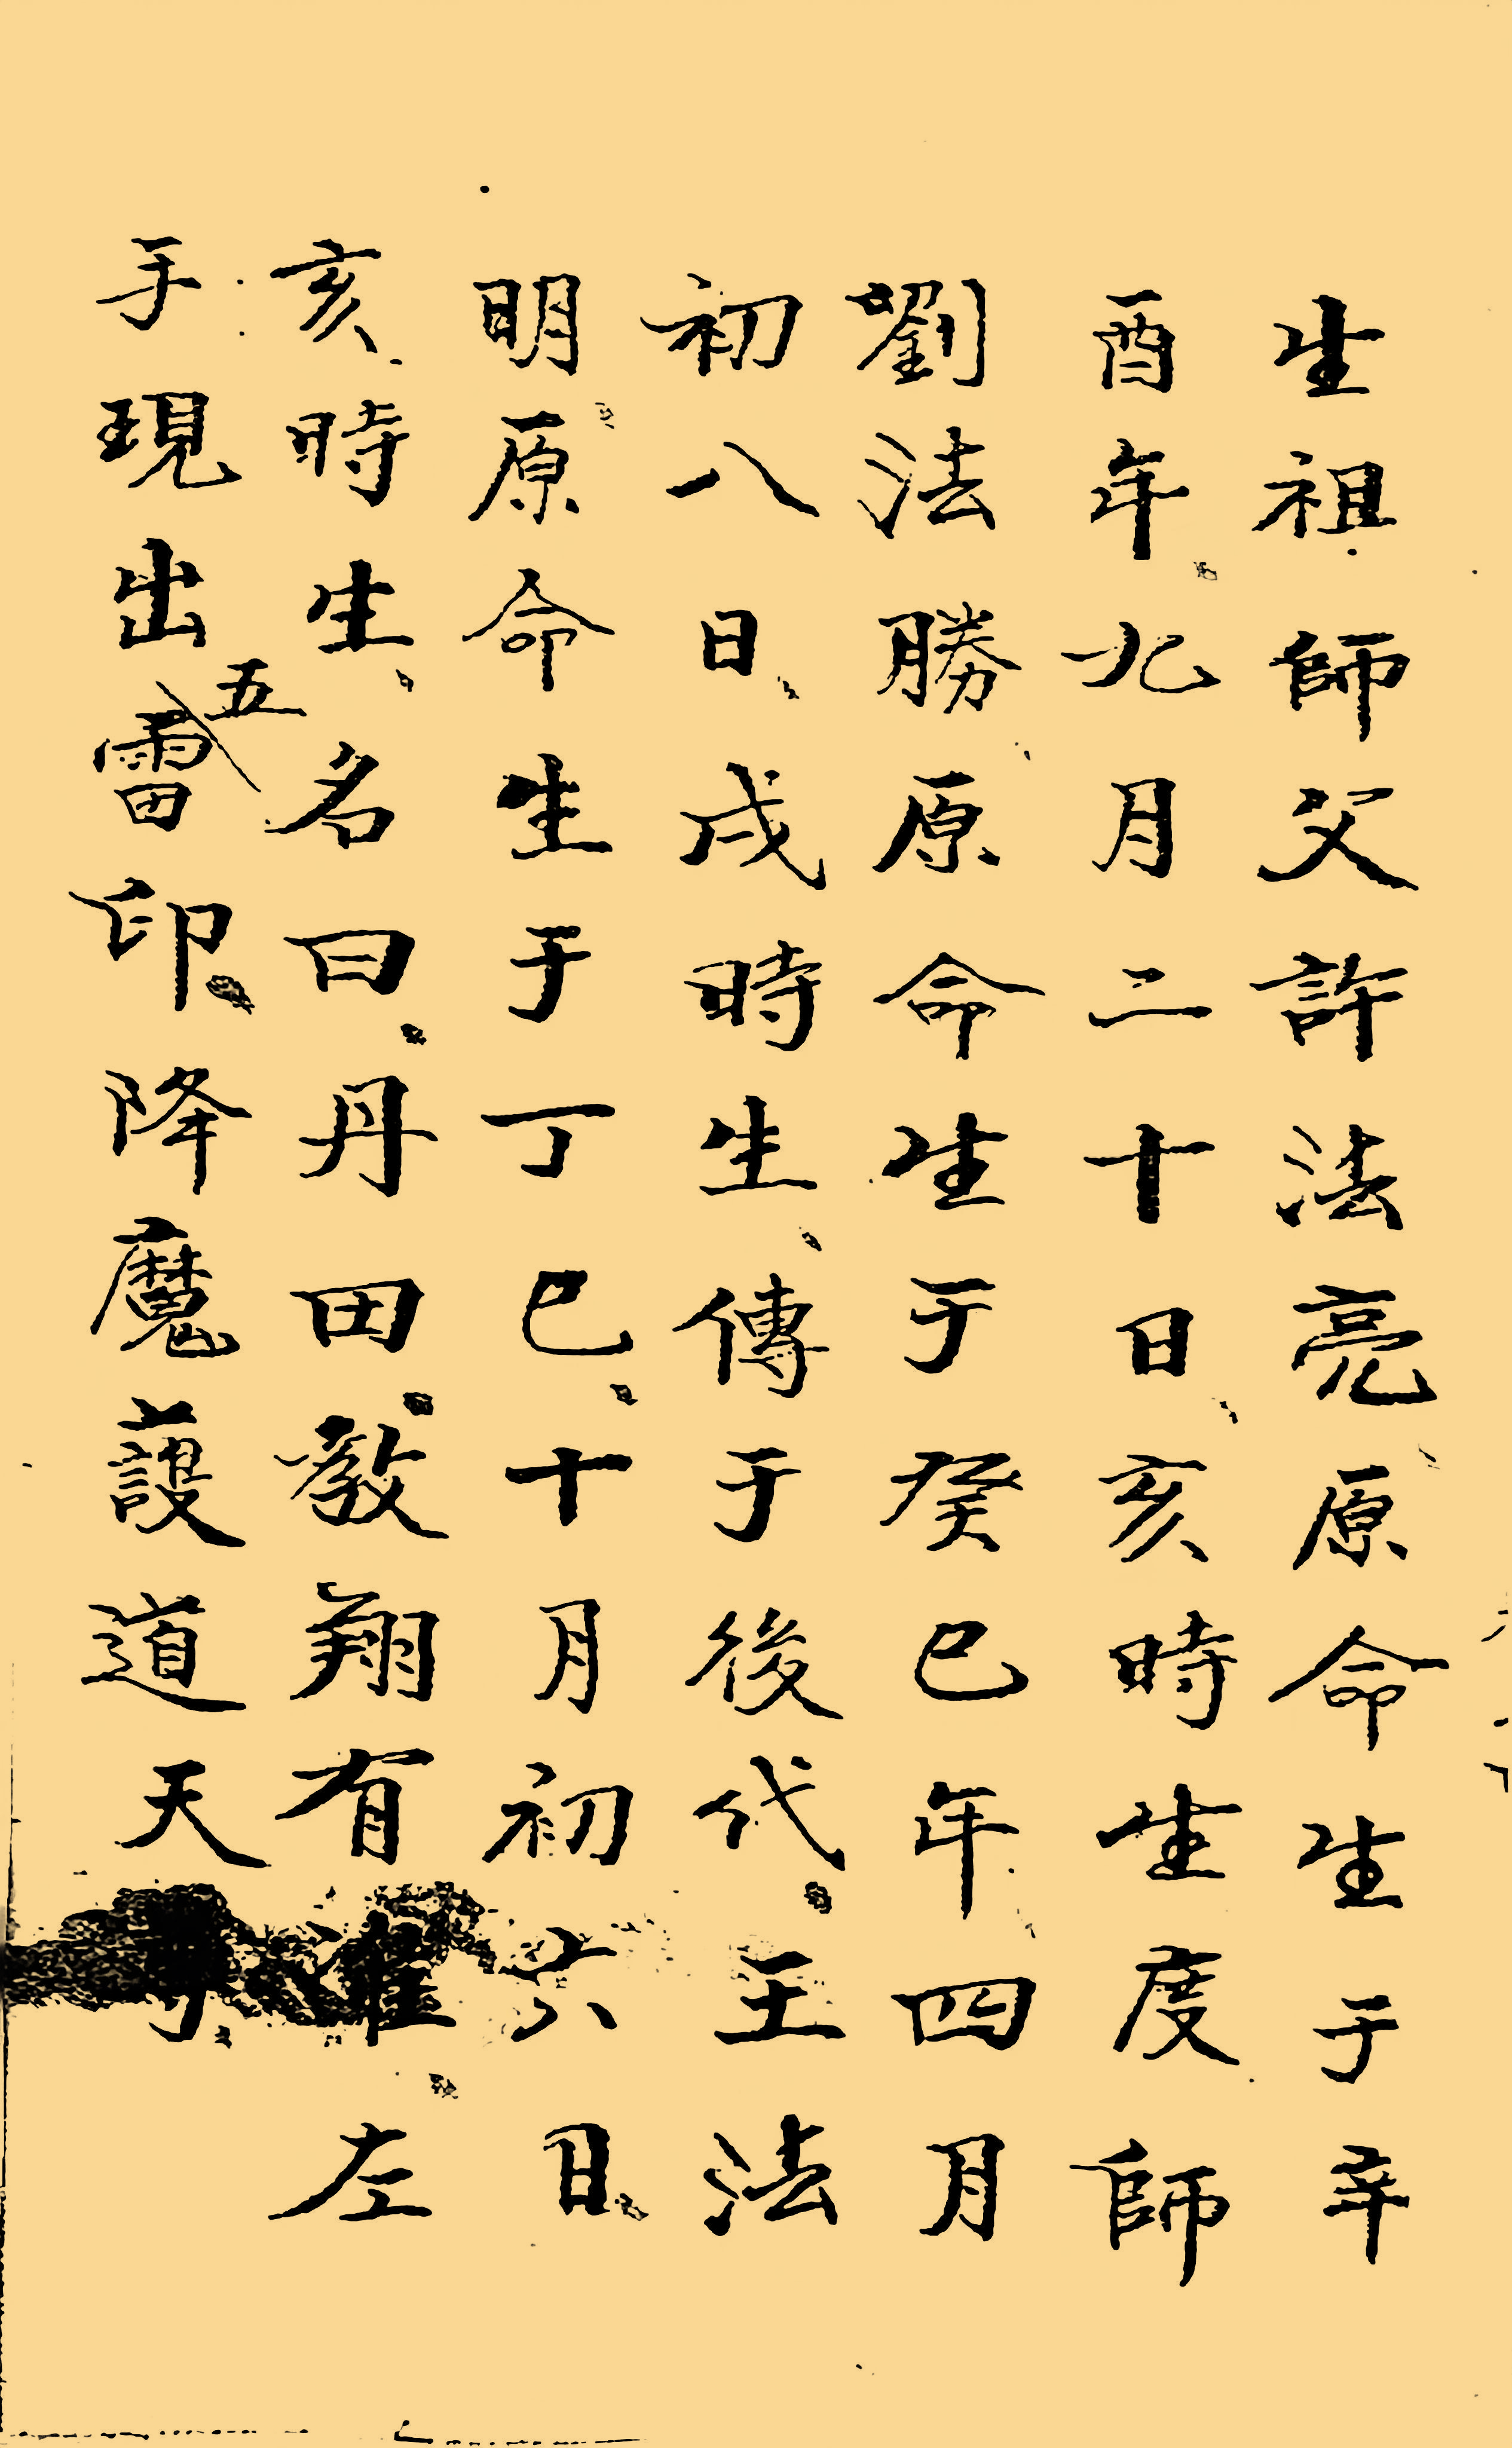 生祖師父許法亮原命生于辛
酉年九月二十日、亥時生度師
劉法勝原命生于癸巳年四月
初八日、戌時生、傳于後代、王法
明原命生于丁巳、十月初六日、
亥時生、名曰、丹田、教翔有左
手現出五雷印、降魔護道天